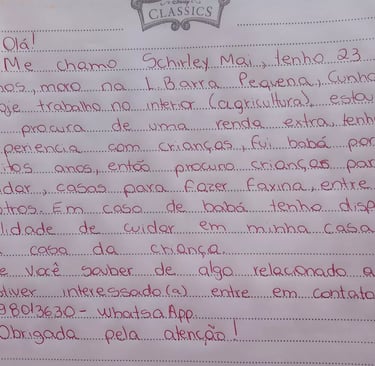 CLASSICS
Olá!
Me chamo Schirley Mai, tenho 23
nos, moro na L. Barra Pequena, Cunha
oje trabalho no interior (agricultura), estou
procura de uma renda extra, tenh
periencia com crianças, fui babá por
itos anos, então procuro crianças par
dar, casas para fazer faxina, entre
tros. Em caso de babá tenho disp
lidade de cuidar em minha casa
casa da criança.
e você souber de algo relacionado a
tiver interessado(a) entre em contato
98013630 - WhatsaApp.
Obrigada pela atenção!